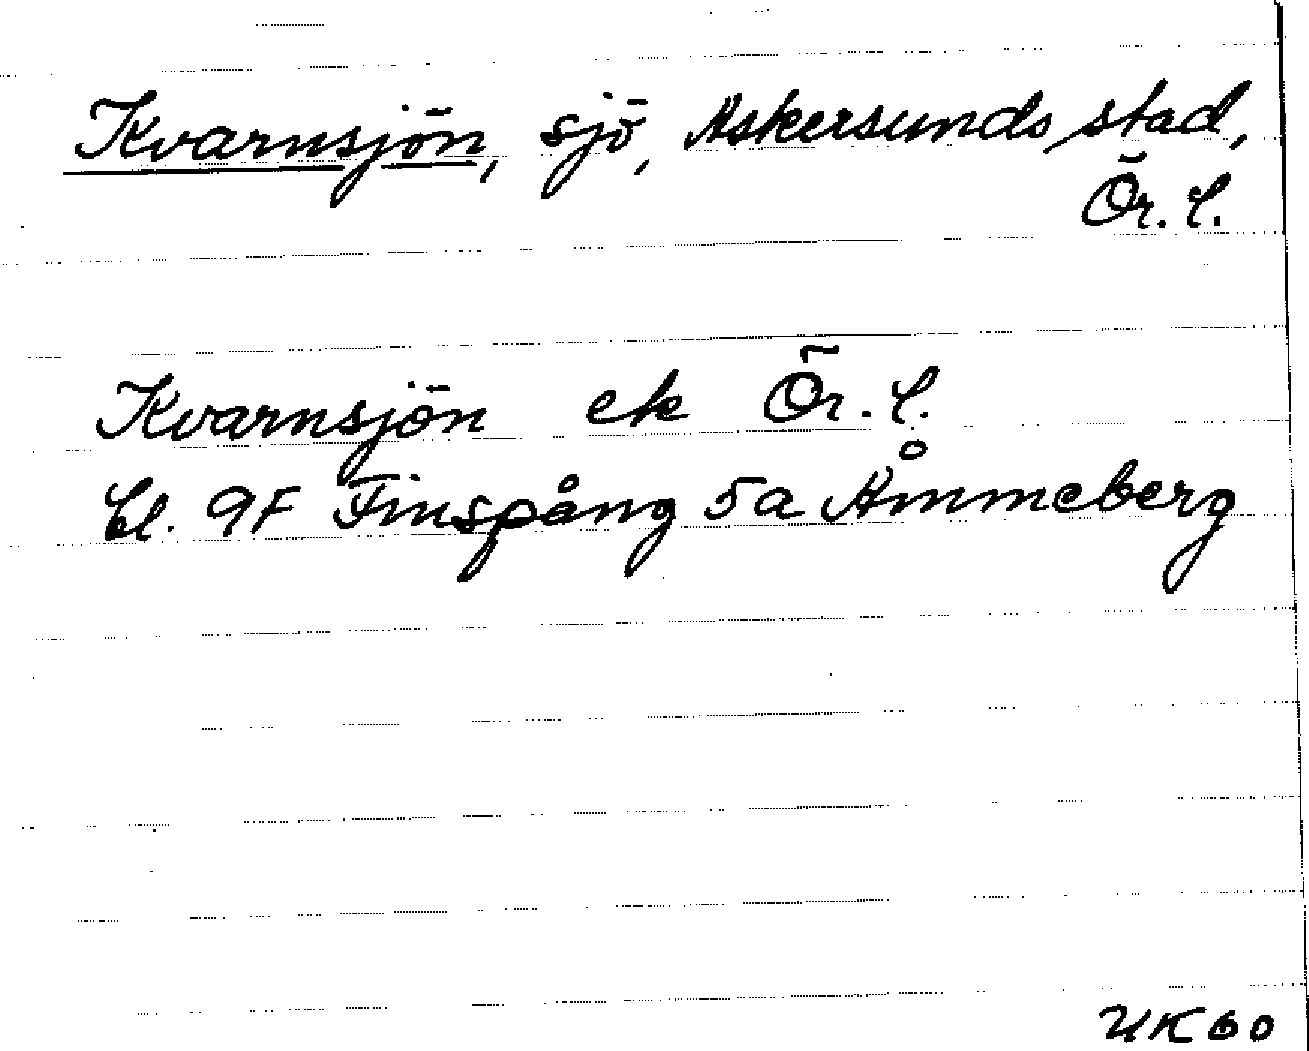 Kvarnsjön, sjö, Askersunds stad,
Ör. l.
Kvarnsjön ek Ör. l.
bl. 9F Finspång 5a Åmmeberg
UK60